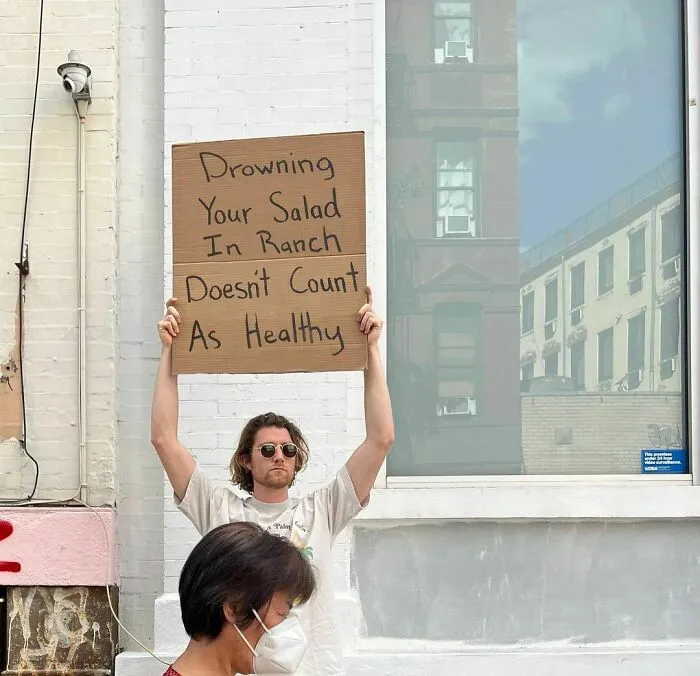 Drowning
Your Salad
In Ranch
Doesn't Count
As Healthy
This premises
under 24 hour
video surveillance.